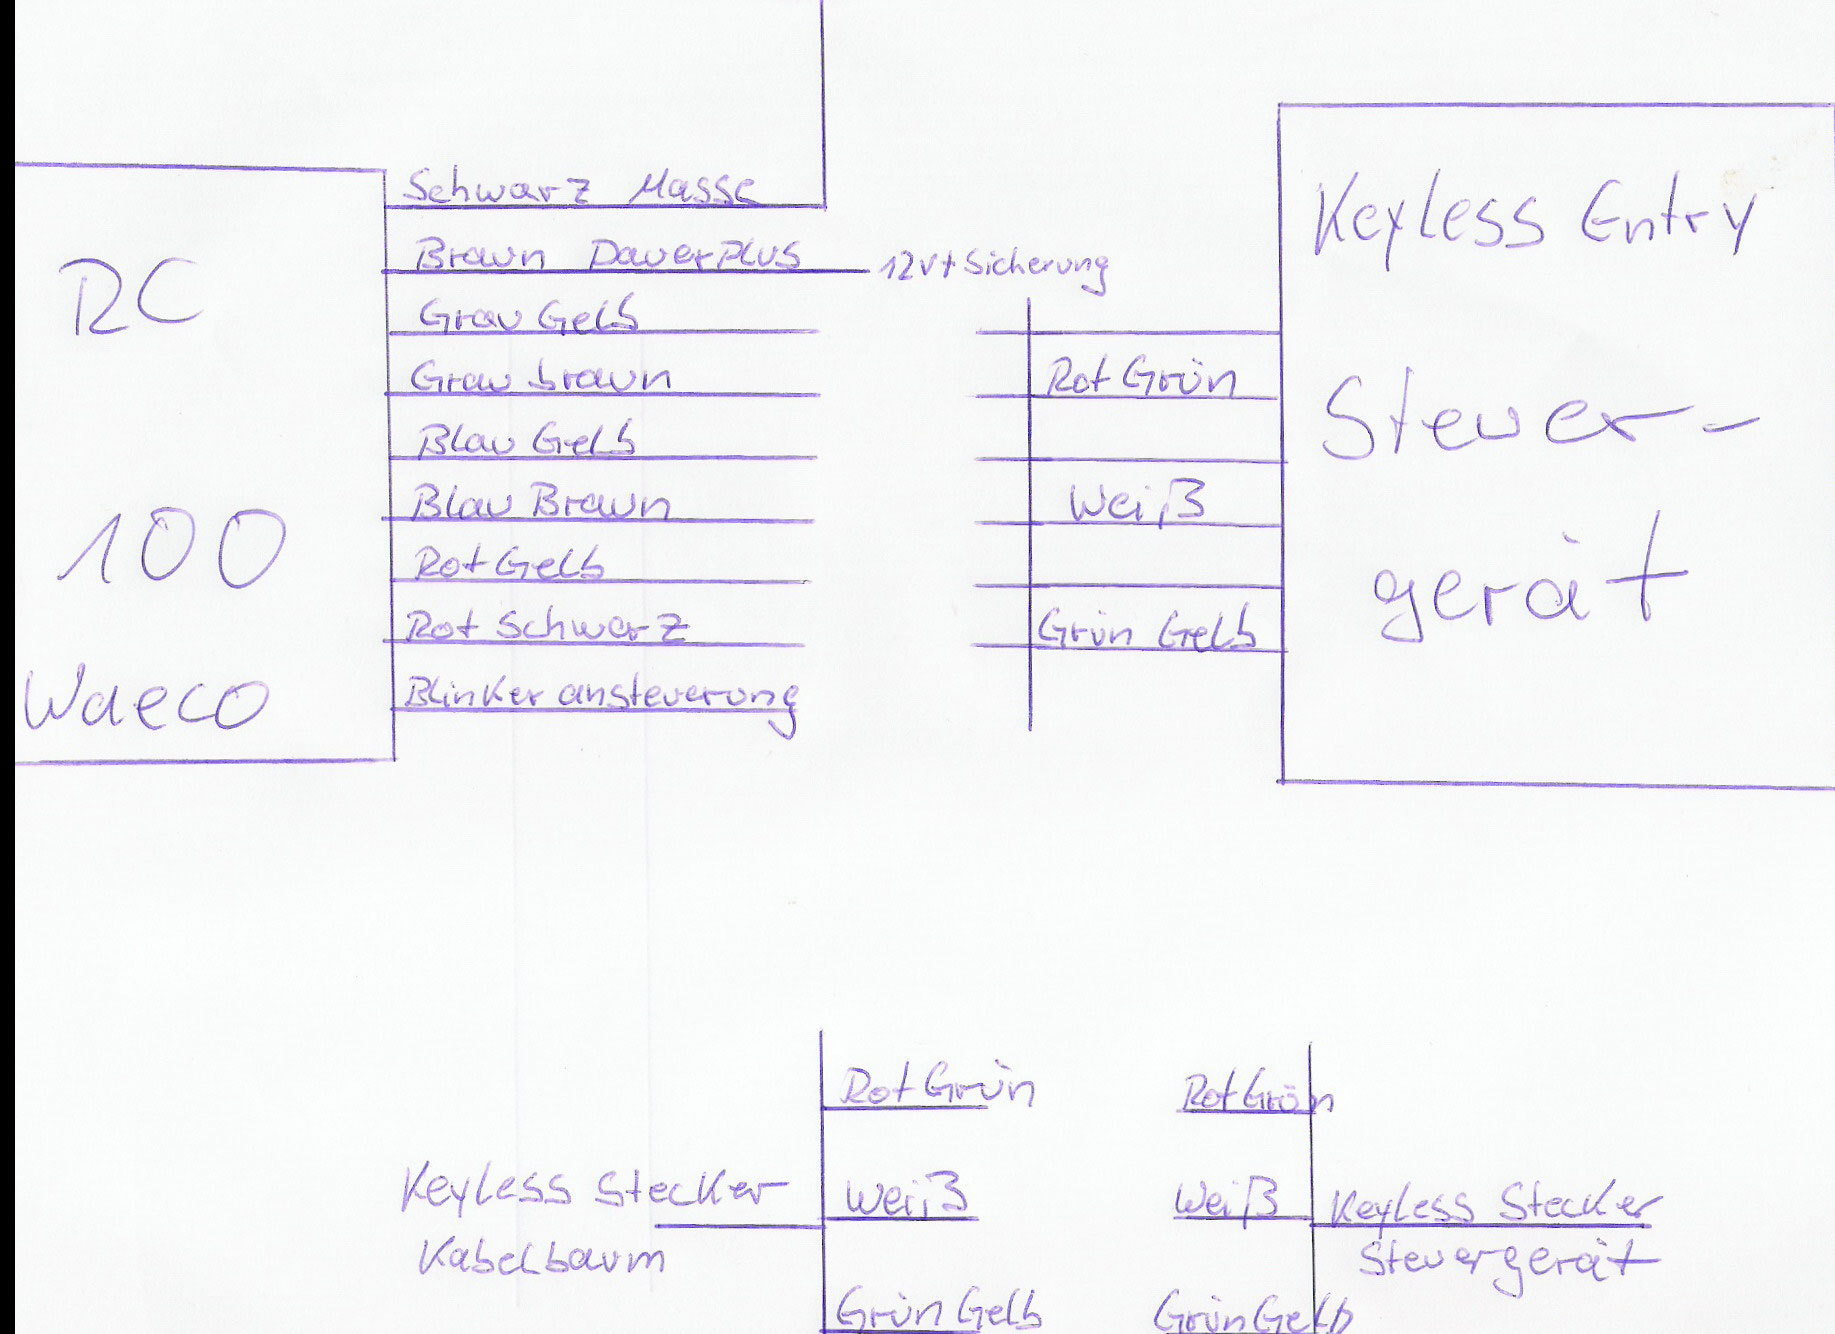 RC
100
Waeco
Schwarz Masse
Braun Dauerplus
12V+ Sicherung
Grau Gelb
Grau braun
Blau Gelb
Blau Braun
Rot Gelb
Rot Schwarz
Blinker ansteuerung
Rot Grün
Weiß
Grün Gelb
Keyless Entry
Steuer-
gerät
Keyless Stecker
Kabelbaum
Rot Grün
Weiß
Grün Gelb
Rot Grün
Weiß
Grün Gelb
Keyless Stecker
Steuergerät